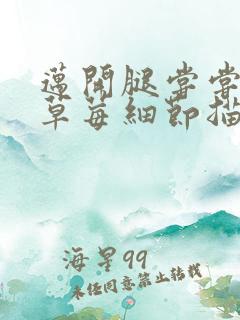 邁開腿嘗嘗
草莓細節描
海星99
未任同意禁止转载